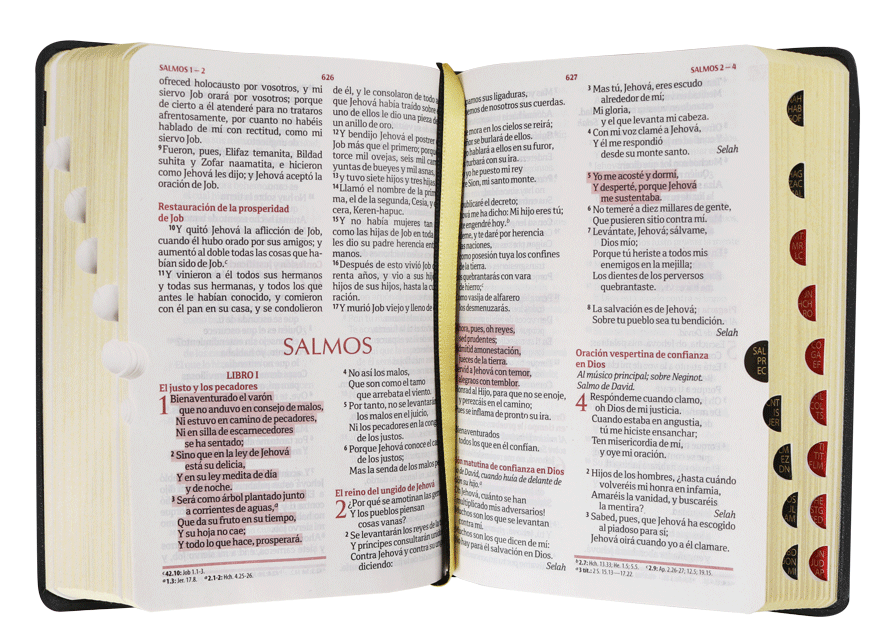 SALMOS 1—2
626
ofreced holocausto por vosotros, y mi
siervo Job orará por vosotros; porque
de cierto a él atenderé para no trataros
afrentosamente, por cuanto no habéis
hablado de mí con rectitud, como mi
siervo Job.
9Fueron, pues, Elifaz temanita, Bildad
suhita y Zofar naamatita, e hicieron
como Jehová les dijo; y Jehová aceptó la
oración de Job.
Restauración de la prosperidad
de Job
10Y quitó Jehová la aflicción de Job,
cuando él hubo orado por sus amigos; y
aumentó al doble todas las cosas que ha-
bían sido de Job.c
11Y vinieron a él todos sus hermanos
y todas sus hermanas, y todos los que
antes le habían conocido, y comieron
con él pan en su casa, y se condolieron
de él, y le consolaron de todo
que Jehová había traído sobre
uno de ellos le dio una pieza de
un anillo de oro.
12Y bendijo Jehová el postrer
Job más que el primero; porque
torce mil ovejas, seis mil
yuntas de bueyes y mil asnas,
13y tuvo siete hijos y tres hijas
14Llamó el nombre de la prim
ma, el de la segunda, Cesia, y
cera, Keren-hapuc.
15Y no había mujeres tan
como las hijas de Job en toda
les dio su padre herencia ent
manos.
16Después de esto vivió Job
renta años, y vio a sus hij
hijos de sus hijos, hasta la cu
ración.
17Y murió Job viejo y lleno de
SALMOS
LIBRO I
El justo y los pecadores
1 Bienaventurado el varón
que no anduvo en consejo de malos,
Ni estuvo en camino de pecadores,
Ni en silla de escarnecedores
se ha sentado;
2 Sino que en la ley de Jehová
está su delicia,
Y en su ley medita de día
y de noche.
3 Será como árbol plantado junto
a corrientes de aguas,a
Que da su fruto en su tiempo,
Y su hoja no cae;
Y todo lo que hace, prosperará.
4 No así los malos,
Que son como el tamo
que arrebata el viento.
5 Por tanto, no se levantarán
los malos en el juicio,
Ni los pecadores en la cong
de los justos.
6 Porque Jehová conoce el ca
de los justos;
Mas la senda de los malos
El reino del ungido de Jehová
2 ¿Por qué se amotinan las gen
Y los pueblos piensan
cosas vanas?
2 Se levantarán los reyes de la
Y príncipes consultarán unid
Contra Jehová y contra su
diciendo:
c 42.10: Job 1.1-3.
a 1.3: Jer. 17.8. a 2.1-2: Hch. 4.25-26.
627
SALMOS 2—4
pamos sus ligaduras,
emos de nosotros sus cuerdas.
e mora en los cielos se reirá;
or se burlará de ellos.
o hablará a ellos en su furor,
turbará con su ira.
yo he puesto mi rey
re Sion, mi santo monte.
ublicaré el decreto;
á me ha dicho: Mi hijo eres tú;
engendré hoy.b
deme, y te daré por herencia
as naciones,
omo posesión tuya los confines
de la tierra.
s quebrantarás con vara
de hierro;c
omo vasija de alfarero
os desmenuzarás.
hora, pues, oh reyes,
sed prudentes;
dmitid amonestación,
jueces de la tierra.
ervid a Jehová con temor,
alegraos con temblor.
onrad al Hijo, para que no se enoje,
y perezcáis en el camino;
ues se inflama de pronto su ira.
Bienaventurados
todos los que en él confían.
matutina de confianza en Dios
de David, cuando huía de delante de
su hijo.a
Oh Jehová, cuánto se han
multiplicado mis adversarios!
Muchos son los que se levantan
contra mí.
Muchos son los que dicen de mí:
No hay para él salvación en Dios.
Selah
3 Mas tú, Jehová, eres escudo
alrededor de mí;
Mi gloria,
y el que levanta mi cabeza.
4 Con mi voz clamé a Jehová,
Y él me respondió
desde su monte santo.
Selah
5 Yo me acosté y dormí,
Y desperté, porque Jehová
me sustentaba.
6 No temeré a diez millares de gente,
Que pusieren sitio contra mí.
7 Levántate, Jehová; sálvame,
Dios mío;
Porque tú heriste a todos mis
enemigos en la mejilla;
Los dientes de los perversos
quebrantaste.
8 La salvación es de Jehová;
Sobre tu pueblo sea tu bendición.
Selah
Oración vespertina de confianza
en Dios
Al músico principal; sobre Neginot.
Salmo de David.
4 Respóndeme cuando clamo,
oh Dios de mi justicia.
Cuando estaba en angustia,
tú me hiciste ensanchar;
Ten misericordia de mí,
y oye mi oración.
2 Hijos de los hombres, ¿hasta cuándo
volveréis mi honra en infamia,
Amaréis la vanidad, y buscaréis
la mentira?
Selah
3 Sabed, pues, que Jehová ha escogido
al piadoso para sí;
Jehová oirá cuando yo a él clamare.
b 2.7: Hch. 13.33; He. 1.5; 5.5. c 2.9: Ap. 2.26-27; 12.5; 19.15.
a 3 tít.: 2 S. 15.13—17.22.
SAL
PR
EC